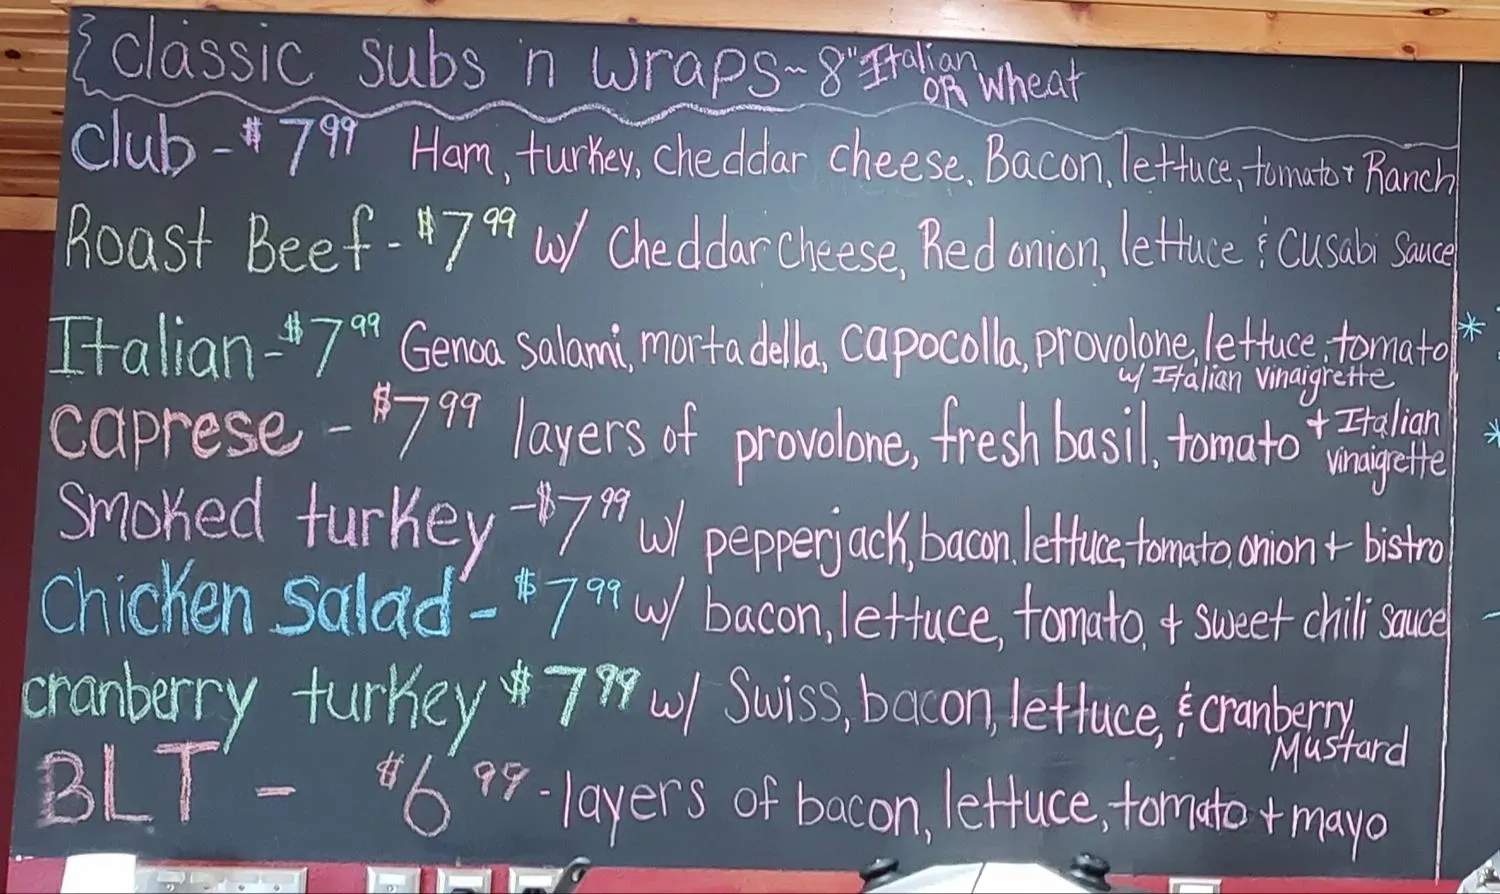 { Classic subs 'n wraps ~ 8" Italian OR Wheat
Club - $7.99 Ham, turkey, cheddar cheese, Bacon, lettuce, tomato + Ranch
Roast Beef - $7.99 w/ Cheddar Cheese, Red onion, lettuce & Cusabi Sauce
Italian - $7.99 Genoa Salami, mortadella, capocolla, provolone, lettuce, tomato
w/ Italian Vinaigrette
caprese - $7.99 layers of provolone, fresh basil, tomato + Italian
vinaigrette
Smoked turkey - $7.99 w/ pepperjack, bacon, lettuce, tomato, onion + bistro
Chicken Salad - $7.99 w/ bacon, lettuce, tomato, + sweet chili sauce
cranberry turkey $7.99 w/ Swiss, bacon, lettuce, & cranberry
Mustard
BLT - $6.99 - layers of bacon, lettuce, tomato + mayo